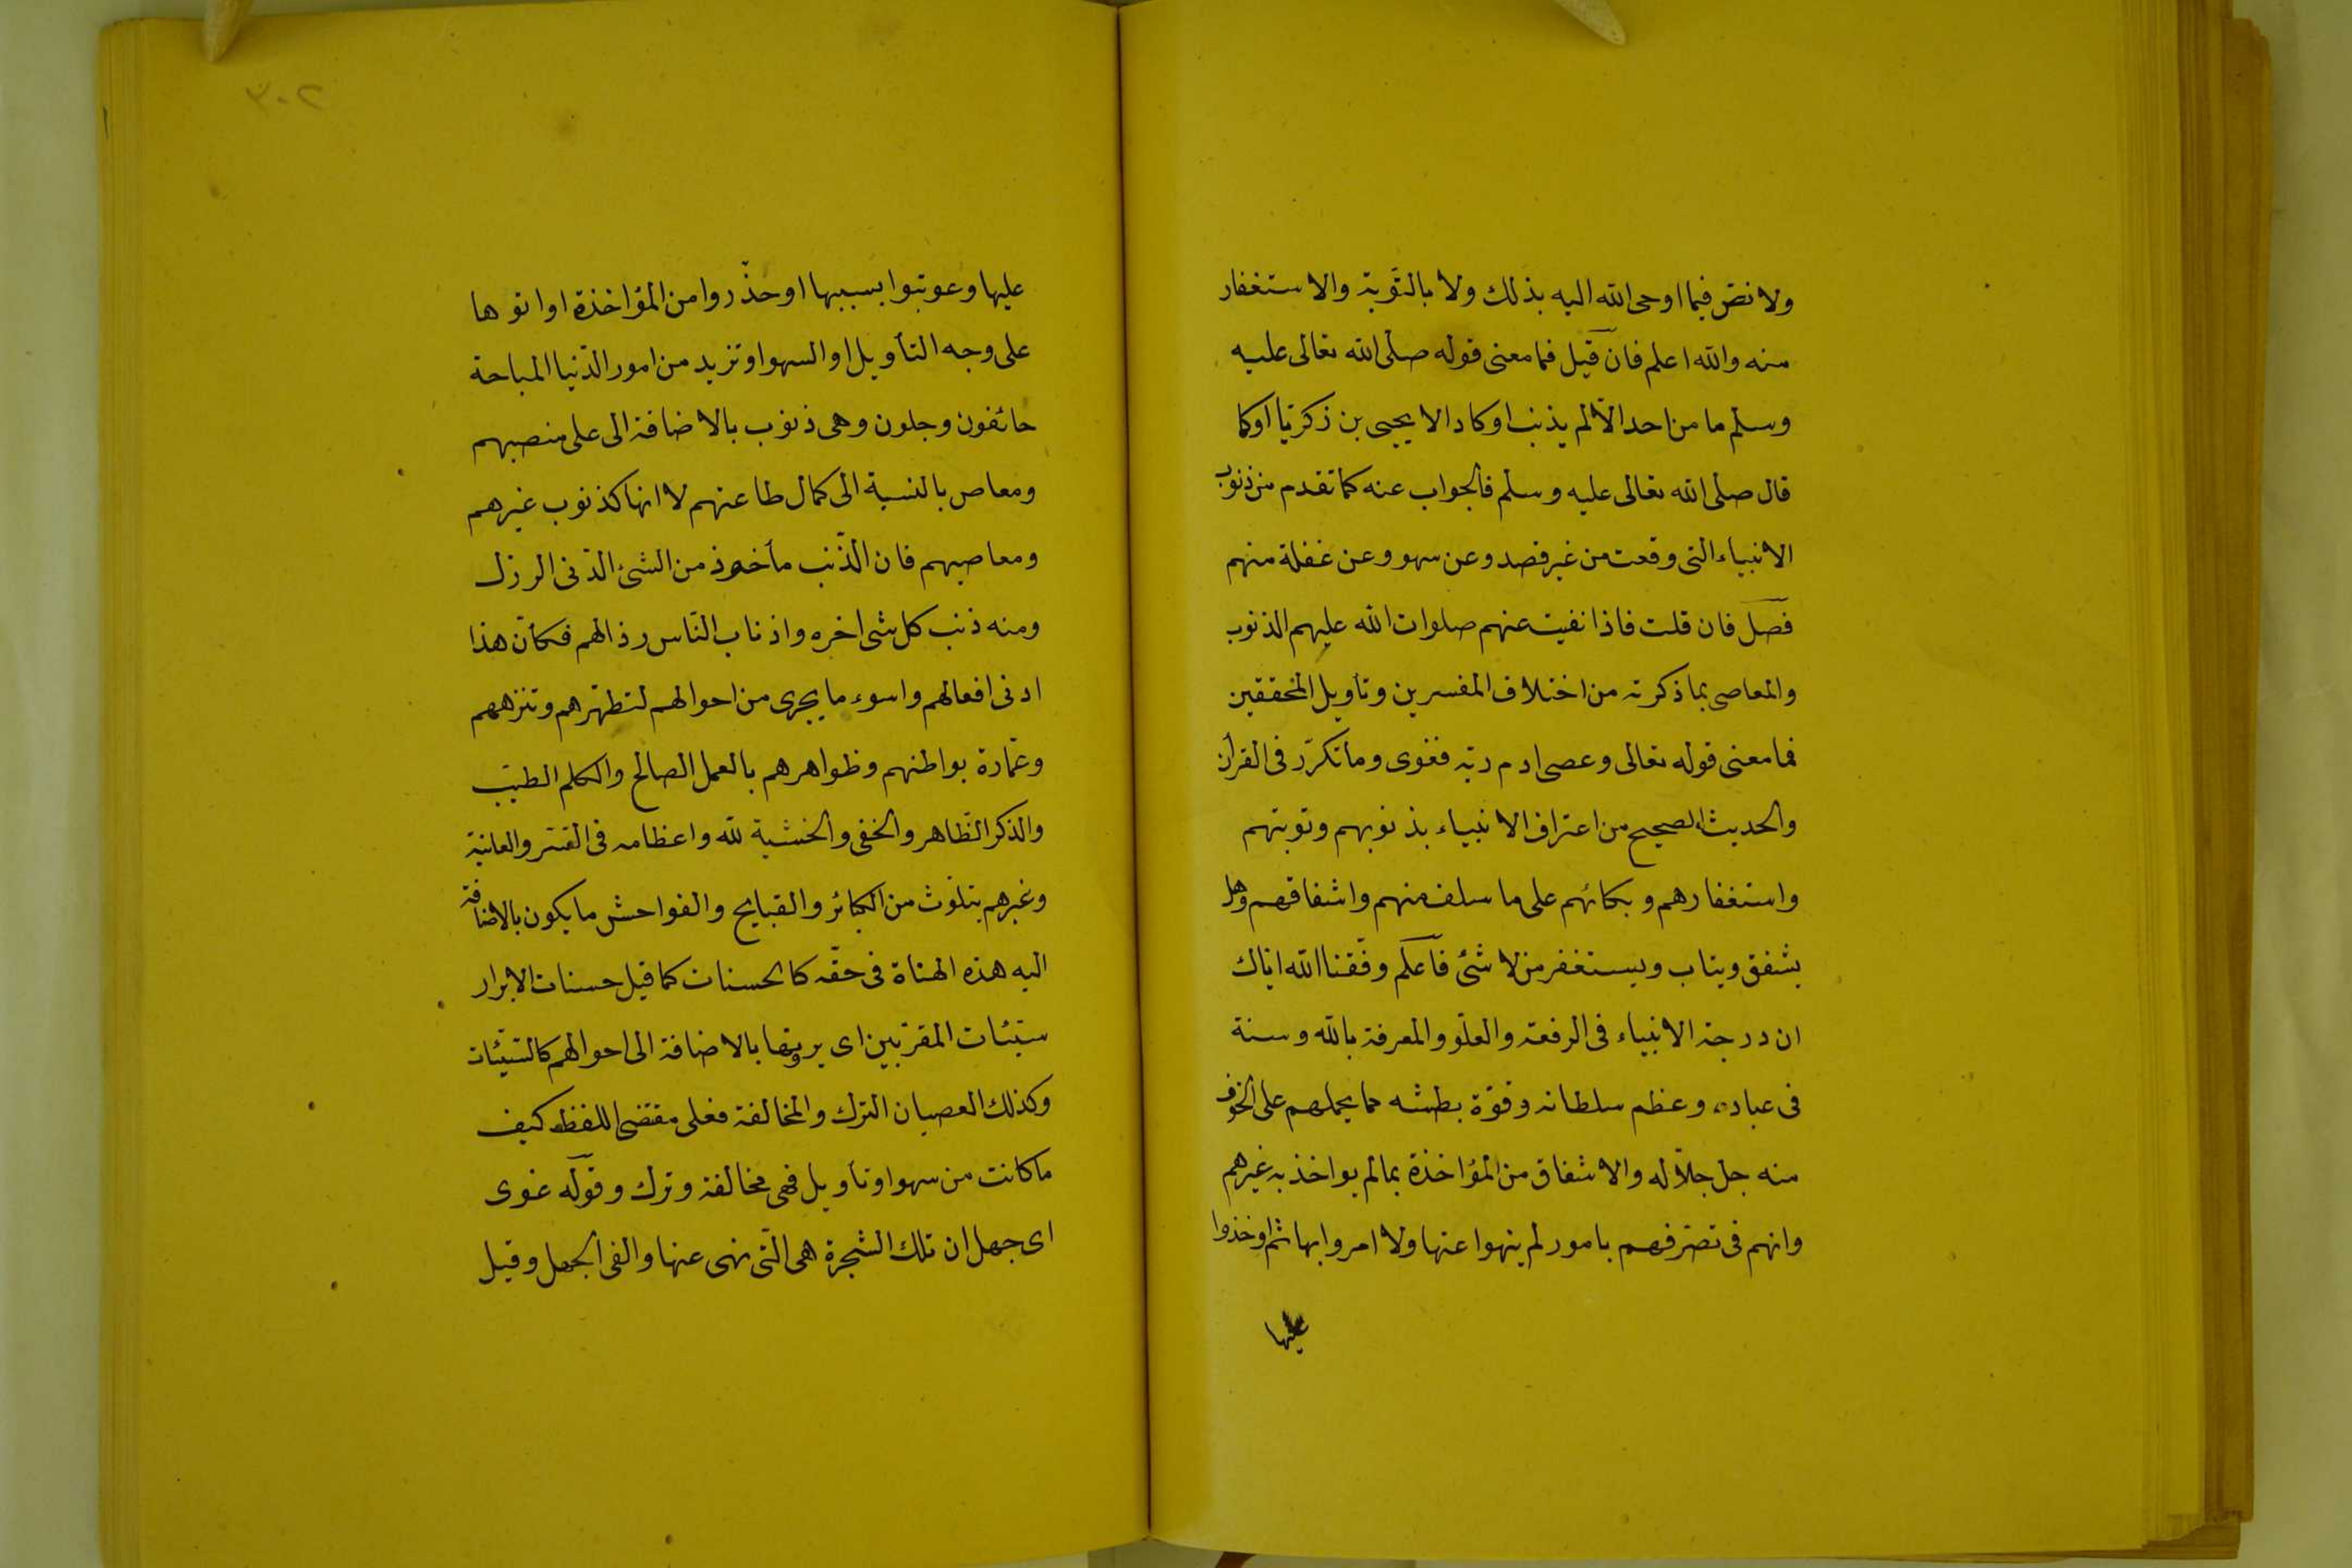 ولا نص فيما اوحى الله اليه بذلك ولا بالتوبة والاستغفار
منه والله اعلم فان قيل فما معنى قوله صلى الله تعالى عليه
وسلم ما من احد الا الم بذنب اوكاد الا يحيى بن زكريا اوكما
قال صلى الله تعالى عليه وسلم فالجواب عنه كما تقدم من ذنوب
الانبياء التى وقعت من غير قصد وعن سهو وعن غفلة منهم
فصل فان قلت فاذا نفيت عنهم صلوات الله عليهم الذنوب
والمعاصى بما ذكرته من اختلاف المفسرين وتأويل المحققين
فما معنى قوله تعالى وعصى ادم ربه فغوى وما تكرّر فى القرأن
والحديث الصحيح من اعتراف الانبياء بذنوبهم وتوبتهم
واستغفارهم وبكائهم على ما سلف منهم واشفاقهم وهل
يشفق ويتاب ويستغفر من لا شئ فاعلم وفّقنا الله اياك
ان درجة الانبياء فى الرفعة والعلوّ والمعرفة بالله وسنة
فى عباده وعظم سلطانه وقوّة بطشه مما يحملهم على الخوف
منه جل جلاله والاشفاق من المؤاخذة بما لم يواخذ به غيرهم
وانهم فى تصرّفهم بامور لم ينهوا عنها ولا امروا بها ثم اوخذوا
عليها
٣٠٢
عليها وعوتبوا بسببها اوحذّروا من المؤاخذة او اتوها
على وجه التأويل او السهو او تزيد من امور الدّنيا المباحة
خائفون وجلون وهى ذنوب بالاضافة الى على منصبهم
ومعاص بالنسبة الى كمال طاعتهم لا انها كذنوب غيرهم
ومعاصيهم فان الذّنب مأخوذ من الشئ الدّنى الرزل
ومنه ذنب كل شى اخره واذناب النّاس رذالهم فكأنّ هذا
ادنى افعالهم واسوء ما يجرى من احوالهم لتطهّرهم وتنزههم
وعمّارة بواطنهم وظواهرهم بالعمل الصالح والكلم الطيّب
والذكر الظّاهر والخفى والخشية لله واعظامه فى السّر والعلانية
وغيرهم يتلوّث من الكبائر والقبايح والفواحش ما يكون بالاضافة
اليه هذه الهناة فى حقّه كالحسنات كما قيل حسنات الابرار
سيّئات المقرّبين اى يرونها بالاضافة الى احوالهم كالسّيّئات
وكذلك العصيان الترك والمخالفة فعلى مقتضى اللفظه كيف
ما كانت من سهو او تأويل فهى مخالفة وترك وقوله غوى
اى جهل ان تلك الشجرة هى الّتى نهى عنها والغى الجهل وقيل